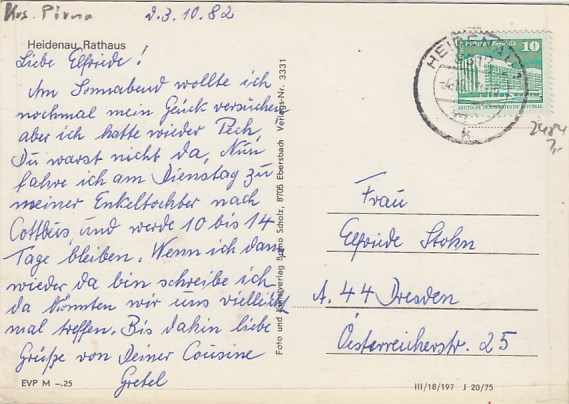 Krs. Pirna
d. 3.10.82
Heidenau, Rathaus
Liebe Elfriede!
Am Sonnabend wollte ich
nochmal mein Glück versuchen
aber ich hatte wieder Pech,
Du warst nicht da, Nun
fahre ich am Dienstag zu
meiner Enkeltochter nach
Cottbus und werde 10 bis 14
Tage bleiben. Wenn ich dann
wieder da bin schreibe ich
da könnten wir uns vielleicht
mal treffen. Bis dahin liebe
Grüße von Deiner Cousine
Gretel
EVP M –.25
Foto und Verlag Bruno Scholz, 8705 Ebersbach Verlags-Nr. 3331
HEIDENAU
10
2484
7,-
Frau
Elfriede Stohn
A. 44 Dresden
Österreicherstr. 25
III/18/197 J 20/75